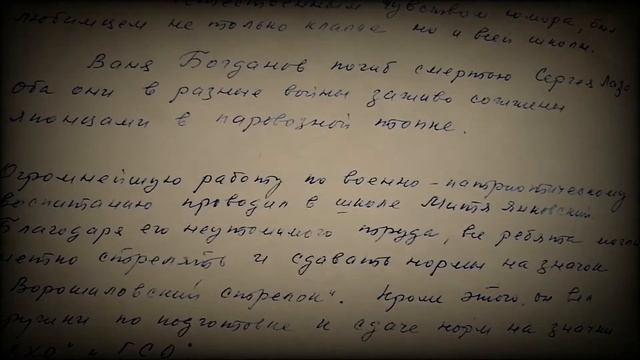 чувством юмора, был
любимцем не только класса но и всей школы.
Ваня Богданов погиб смертью Сергея Лазо
Оба они в разные войны заживо сожжены
японцами в паровозной топке.
Огромнейшую работу по военно-патриотическому
воспитанию проводил в школе Митя Янковский.
Благодаря его неутомимого труда, все ребята могли
метко стрелять и сдавать нормы на значок
Ворошиловский стрелок". Кроме этого, он вел
кружки по подготовке и сдаче норм на значки
ГСО"